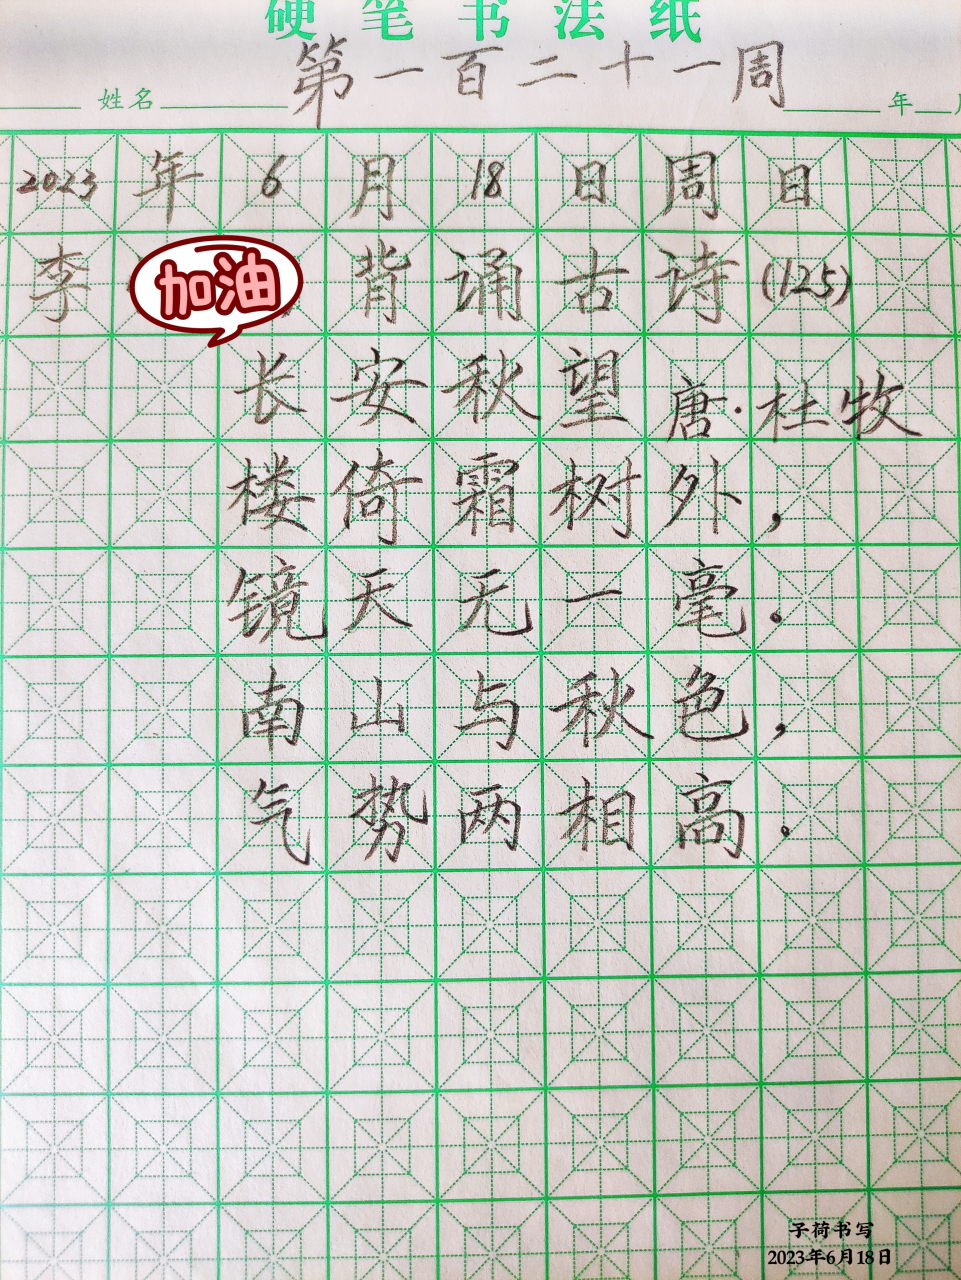 硬笔书法纸
第一百二十一周
姓名 年
2023年6月18日周日
李 加油 背诵古诗(125)
长安秋望 唐·杜牧
楼倚霜树外,
镜天无一毫.
南山与秋色,
气势两相高.
子荷书写
2023年6月18日